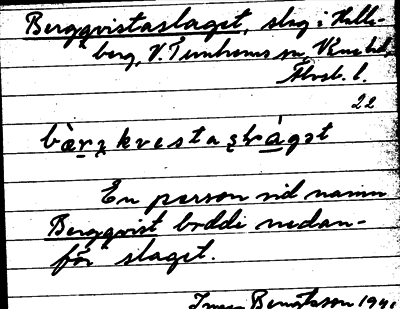 Bergqvistaslaget, slag i Halle-
berg, V. Tunhems sn, Väne hd,
Älvsb. l.
22
bä̀rʒkvestaslàgət
En person vid namn
Bergqvist bodde nedan-
för slaget.
Bengtsson